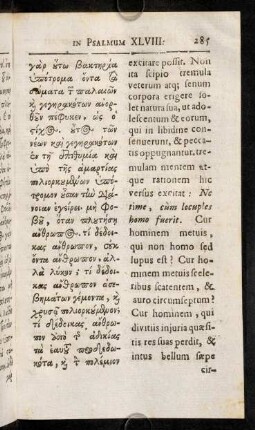 IN PSALMUM XLVIII. 285
γὰρ ὕτω βακτηρία
ὑπότρομα ὄντα
σώματα τ παλαιῶν
κ γεγηρακότων ἀνορ-
θοῦν πέφυκεν, ὡς ὁ
στίχ۞. ὕτ۞ τῶν
νέων καὶ γεγηρακότων
ἐν τῇ ἐπιθυμία καὶ
ὑπὸ τῆς ἁμαρτίας
πολιορκυμένων ὑπό-
τρομον
νοιαν ἐγείρει μὴ Φο-
βῦ, ὅταν πλυτήσῃ
ἄνθρωπ۞. τί δέδοι-
κας ἄνθρωπον, ὐκ
ὄντα ἄνθρωπον, ἀλ-
λὰ λύκον; τί δέδοι-
κας ἄνθρωπον ἀσε-
βημάτων γέμοντα, κ
χρυσῷ πολιορκύμενον;
τί δέδοικας ἄνθρω-
πον ὑπὸ τ ἀδικίας
τὰ ἑαυτῦ προδεδω-
κότα, κ τ πολέμιον
excitare possit. Non
ita scipio tremula
veterum atq; senum
corpora erigere so-
let natura sua, ut ado-
lescentum & eorum,
qui in libidine con-
senuerunt, & pecca-
tis oppugnantur, tre-
mulam mentem at-
que rationem hic
versus excitat: Ne
time, cùm locuples
homo fuerit. Cur
hominem metuis,
qui non homo sed
lupus est? Cur ho-
minem metuis scele-
ribus scatentem, &
auro circumseptum?
Cur hominem, qui
divitiis injuria quæsi-
tis res suas perdit, &
intus bellum sæpe
cir-